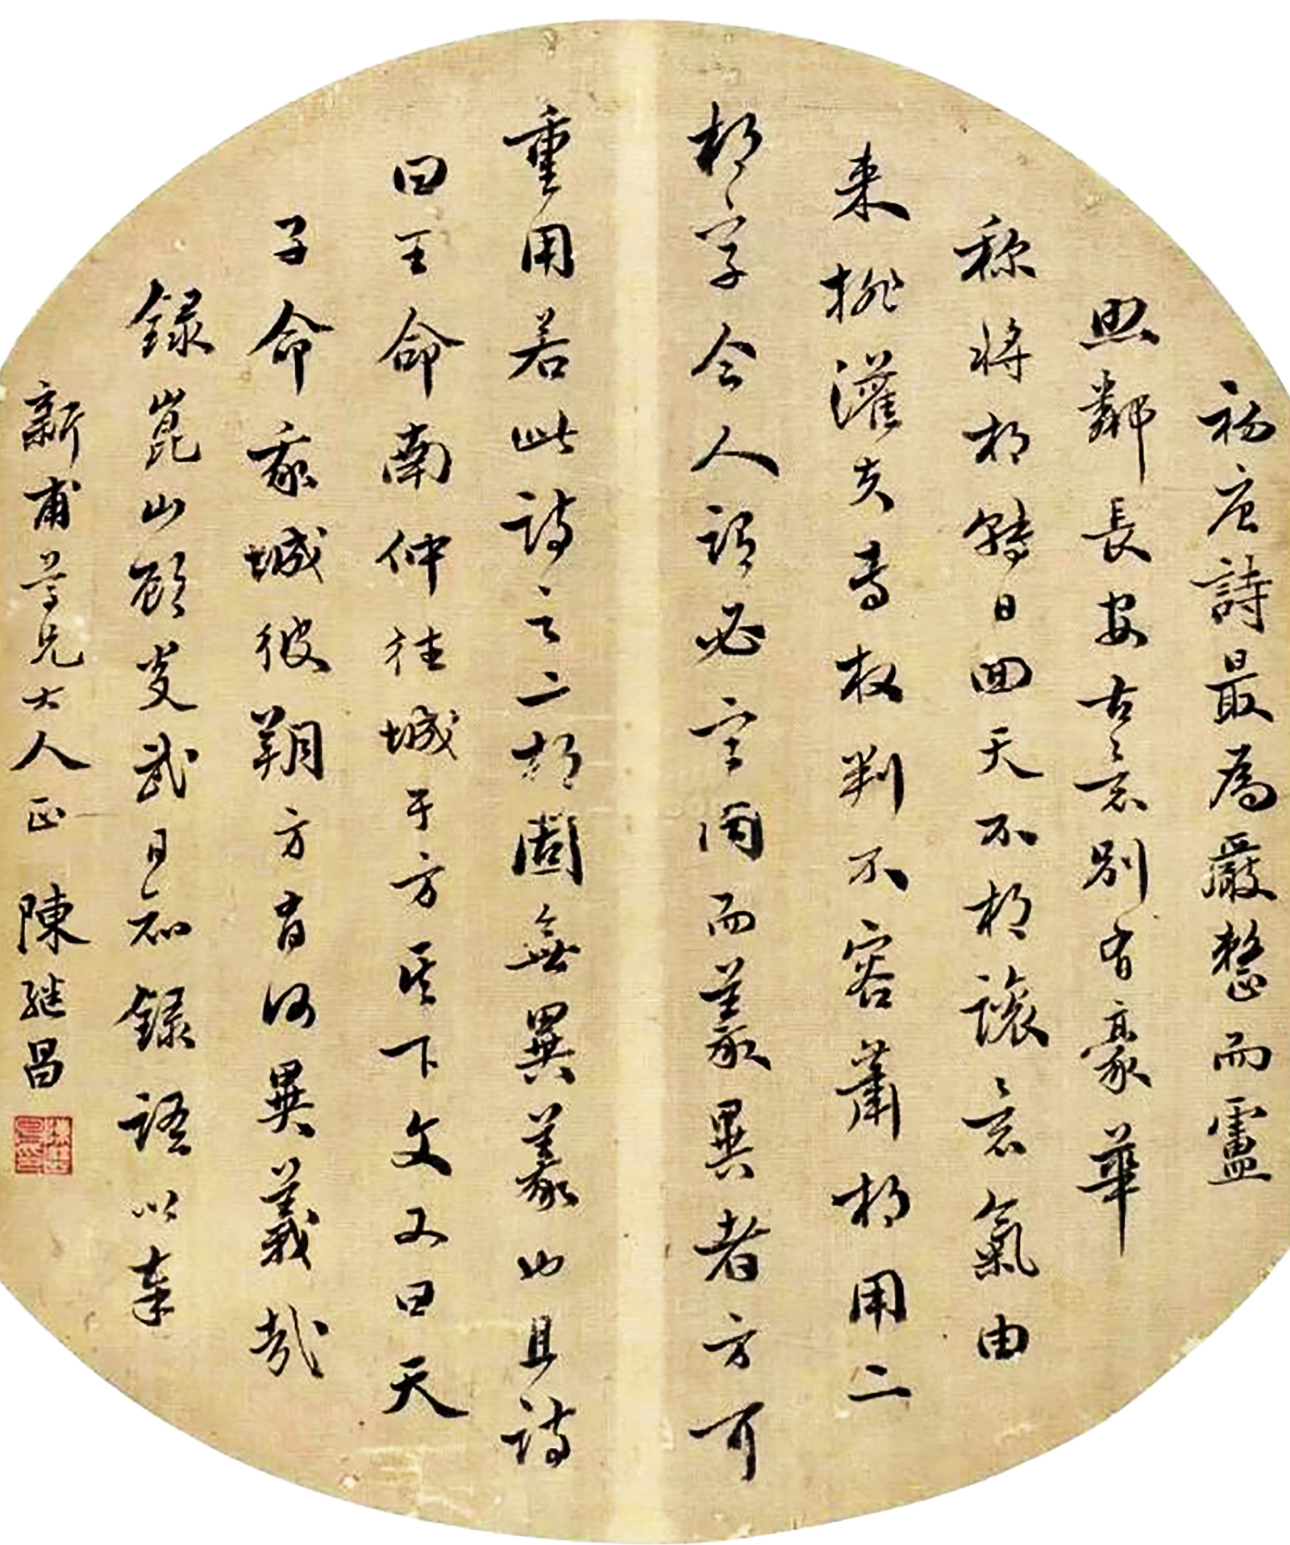 初唐詩最爲嚴整而盧
照鄰長安古意別有豪華
称將相轉日回天不相讓意氣由
来排灌夫專权判不容蕭相用二
相字今人謂必字同而義異者方可
重用若此詩之二相固無異義也且詩
曰王命南仲往城于方其下文又曰天
子命我城彼朔方有何異義哉
錄崑山顧炎武日知錄語以奉
新甫尊兄大人正 陳继昌